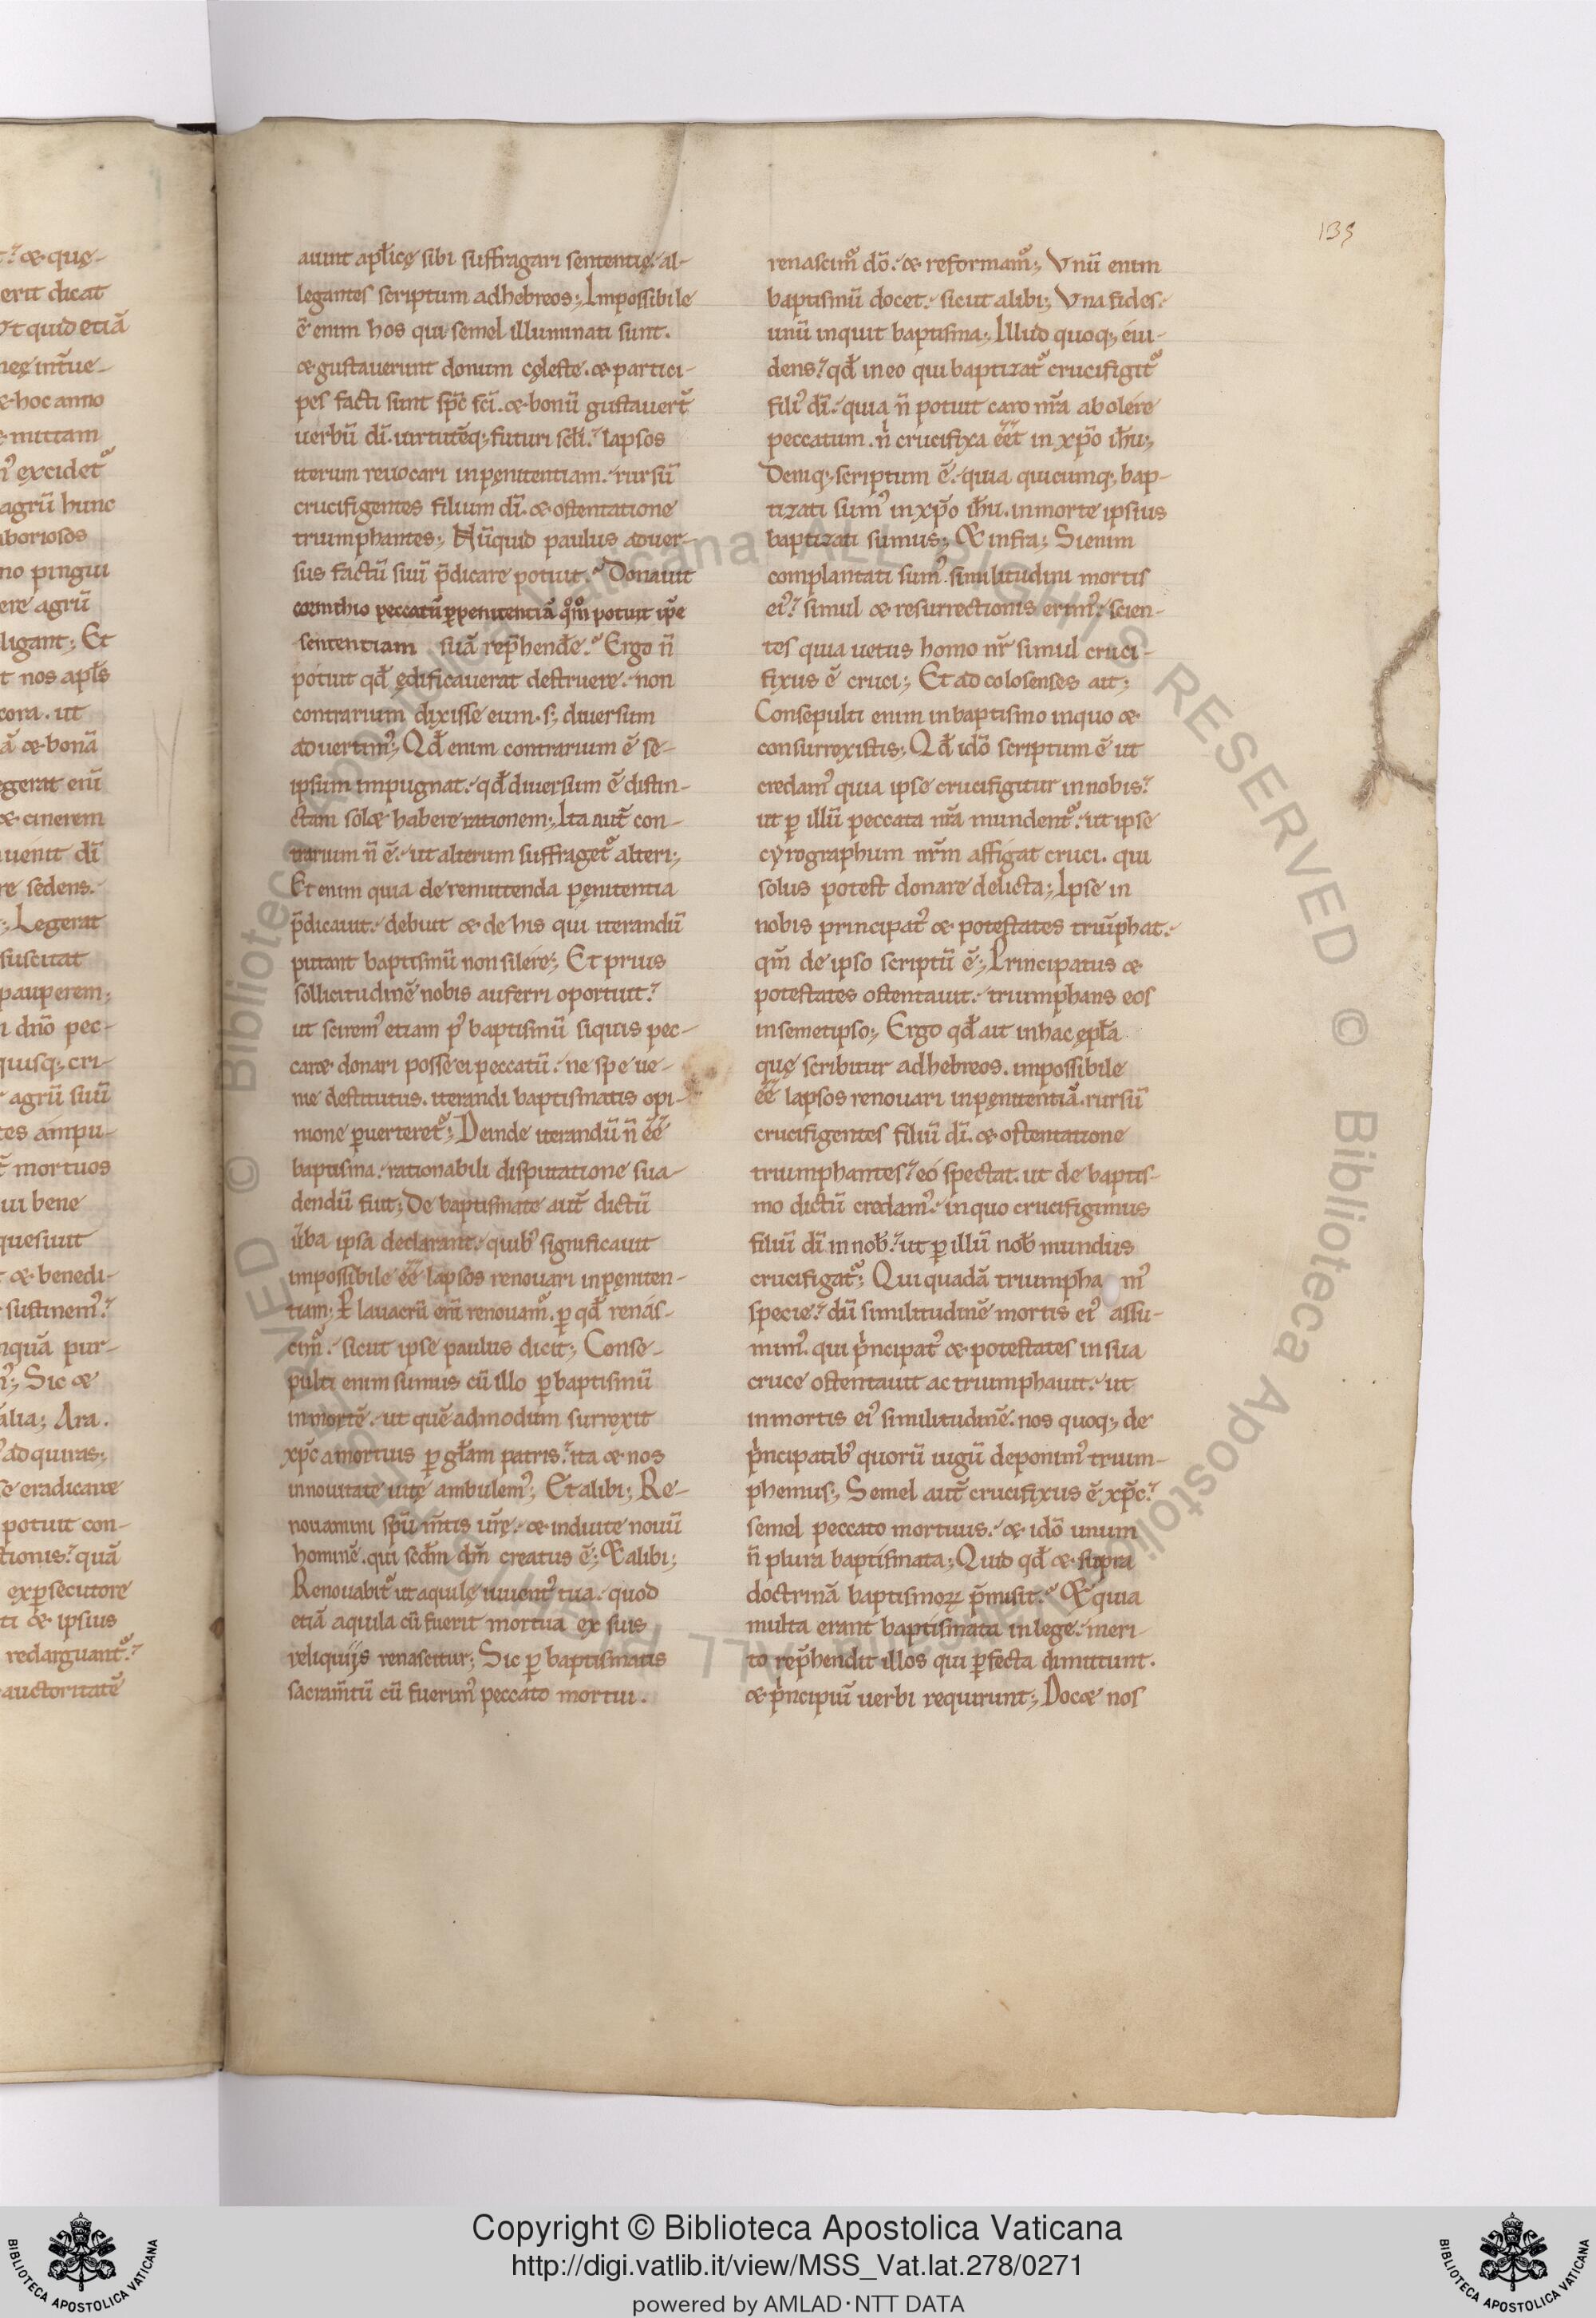 t? & quę-
erit dicat
Vt quid etiã
neę int̃ue-
& hoc anno
mittam
excidet᷑
agrũ hunc
aboriosos
no pingui
ere agrũ
ligant; Et
t nos apl̃s
cora. ut
ã & bonã
egerat enĩ
& cinerem
uenit dĩ
re sedens.
; Legerat
suscitat
pauperem;
dño pec-
quisq; cri-
agrũ suũ
tes ampu-
mortuos
ui bene
quesiuit
& benedi-
sustinem᷒?
nquã pur-
Sic &
alia; Ara.
adquiras;
se eradicare
potuit con-
tionis? quã
ex ꝑsecutore
ti & ipsius
redarguant᷑?
auctoritatẽ
135
aiunt apl̃icę sibi suffragari sententię. al-
legantes scriptum ad hebreos; Impossibile
ẽ enim hos qui semel illuminati sunt.
& gustauerunt donum cęleste. & partici-
pes facti sunt sp̃c sc̃i. & bonũ gustauer̃t
uerbũ dĩ. uirtutẽq; futuri sc̃li. lapsos
iterum reuocari in pęnitentiam. rursũ
crucifigentes filium dĩ. & ostentatione
triumphantes; Nũquid paulus aduer-
sus factũ suũ p̃dicare potuit? Donauit
corinthio peccatũ ꝑ penitentiã qm̊o potuit ip̃e
sententiam suã rep̃hendẽ? Ergo ñ
potuit qd̃ ędificauerat destruere. non
contrarium dixisse eum. s; diuersum
aduertim᷒; Qd̃ enim contrarium ẽ se-
ipsum impugnat. qd̃ diuersum ẽ distin-
ctam sol& habere rationem; Ita aut̃ con-
trarium ñ ẽ. ut alterum suffraget᷑ alteri;
Et enim quia de remittenda pęnitentia
p̃dicauit. debuit & de his qui iterandũ
putant baptismũ non silere; Et prius
sollicitudinẽ nobis auferri oportuit?
ut scirem᷒ etiam p᷒ baptismũ siquis pec-
car& donari posse ei peccatũ. ne spe ue-
nie destitutus. iterandi baptismatis opi-
nione ꝑuerteret᷑; Deinde iterandũ ñ ẽẽ
baptisma. rationabili disputatione sua-
dendũ fuit; De baptismate aut̃ dictũ
ũba ipsa declarant. quib᷒ significauit
impossibile ẽẽ lapsos renouari in pęniten-
tiam; Ꝑ lauacrũ enĩ renouam᷑. ꝑ qd̃ renas-
cim᷑. sicut ipse paulus dicit; Conse-
pulti enim sumus cũ illo ꝑ baptismũ
in mortẽ. ut quẽadmodum surrexit
xp̃c a mortuis ꝑ gl̃am patris? ita & nos
in nouitate uitę ambulem᷒; Et alibi; Re-
nouamini sp̃ũ m̃tis ur̃ę. & induite nouũ
hominẽ. qui scd̃m dm̃ creatus ẽ; & alibi;
Renouabit᷑ ut aquilę iuuent᷒ tua. quod
etiã aquila cũ fuerit mortua ex suis
reliquijs renascitur; Sic ꝑ baptismatis
sacram̃tũ cũ fuerim᷒ peccato mortui.
renascim᷑ dõ. & reformam᷑; Vnũ enim
baptismũ docet. sicut alibi; Vna fides.
unũ inquit baptisma; Illud quoq; eui-
dens? qd̃ in eo qui baptizat᷑ crucifigit᷑
fili᷒ dĩ. quia ñ potuit caro nr̃a abolere
peccatum. nⁱ crucifixa ẽẽt in xp̃o ih̃u;
Deniq; scriptum ẽ. quia quicumq; bap-
tizati sum᷒ in xp̃o ih̃u. in morte ipsius
baptizati sumus; & infra; Si enim
complantati sum᷒ similitudini mortis
ei᷒? simul & resurrectionis erim᷒; scien-
tes quia uetus homo nr̃ simul cruci-
fixus ẽ cruci; Et ad colosenses ait;
Consepulti enim in baptismo in quo &
consurrexistis; Qd̃ idõ scriptum ẽ ut
credam᷒ quia ipse crucifigitur in nobis?
ut ꝑ illũ peccata nr̃a mundent᷑. ut ipse
cyrographum nr̃m affigat cruci. qui
solus potest donare delicta; Ipse in
nobis principat᷒ & potestates triũphat.
qm̃ de ipso scriptũ ẽ; Principatus &
potestates ostentauit. triumphans eos
in semetipso; Ergo qd̃ ait in hac ępl̃a
quę scribitur ad hebreos. impossibile
ẽẽ lapsos renouari in pęnitentiã. rursũ
crucifigentes filiũ dĩ. & ostentatione
triumphantes? eo spectat. ut de baptis-
mo dictũ credam᷒. in quo crucifigimus
filiũ dĩ in nob̃? ut ꝑ illũ nob̃ mundus
crucifigat᷑; Qui quadã triumpha m᷒
specie? dũ similitudinẽ mortis ei᷒ assu-
mim᷒. qui pⁱncipat᷒ & potestates in sua
cruce ostentauit ac triumphauit. ut
in mortis ei᷒ similitudinẽ. nos quoq; de
pⁱncipatib᷒ quorũ iugũ deponim᷒ trium-
phemus; Semel aut̃ crucifixus ẽ xp̃c?
semel peccato mortuus. & idõ unum
ñ plura baptismata; Quid qd̃ & supra
doctrinã baptismoꝝ p̃misit? & quia
multa erant baptismata in lege. meri-
to rep̃hendit illos qui ꝑfecta dimittunt.
& pⁱncipiũ uerbi requirunt; Doc& nos
Copyright © Biblioteca Apostolica Vaticana
http://digi.vatlib.it/view/MSS_Vat.lat.278/0271
powered by AMLAD·NTT DATA
BIBLIOTECA APOSTOLICA VATICANA
BIBLIOTECA APOSTOLICA VATICANA
© Biblioteca Apostolica Vaticana ALL RIGHTS RESERVED
© Biblioteca Apostolica Vaticana ALL RIGHTS RESERVED